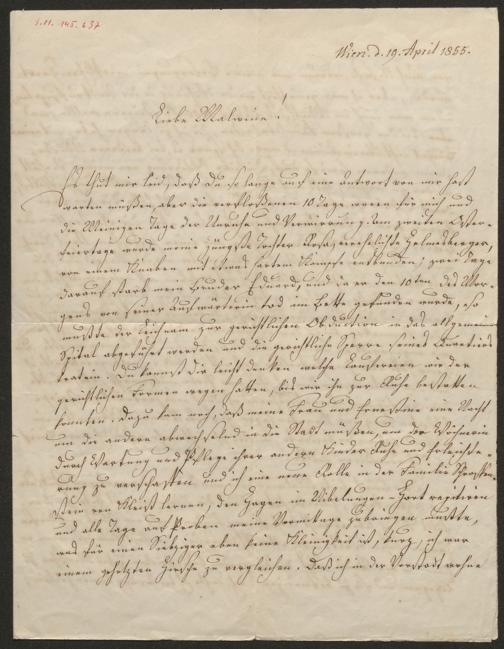 I.N. 145.637
Wien. d. 19. April 1855.
Liebe Malwine!
Es thut mir leid, daß Du so lange auf eine Antwort von mir hast
warten müßen, aber die verfloßenen 10 Tage waren für mich und
die Meinigen Tage der Unruhe und Verwirrung. Am zweiten Oster-
feiertage wurde meine jüngste Tochter Rosa, verehelichte Hellmesberger,
von einem Knaben mit etwas hartem Kampf entbunden; zwei Tage
darauf starb mein Bruder Eduard, und da er den 10ten des Mor-
gens von seiner Aufwärterin tod im Bette gefunden wurde, so
mußte der Leichnam zur gerichtlichen Obduction in das allgemeine
Spital abgeführt werden und die gerichtliche Sperre seines Quartiers
Du kannst Dir leicht denken welche Laufereien wir der
gerichtlichen Formen wegen hatten, bis wir ihn zur Ruhe bestatten
konnten. Dazu kam noch, daß meine Frau und Ernestine eine Nacht
um die andere abwechselnd in die Stadt mußten, um der Wöchnerin
durch Wartung und Pflege ihrer andern Kinder Ruhe und Erleichte-
rung zu verschaffen und ich eine neue Rolle in der Familie Schroffen-
stein von Kleist lernen, den Hagen im Nibelungen-Hort repetiren
und alle Tage auf Proben meine Vormittage zubringen mußte,
was für einen Siebziger eben keine Kleinigkeit ist, kurz, ich war
einem gehetzten Hirsche zu vergleichen. Daß ich in der Vorstadt wohne